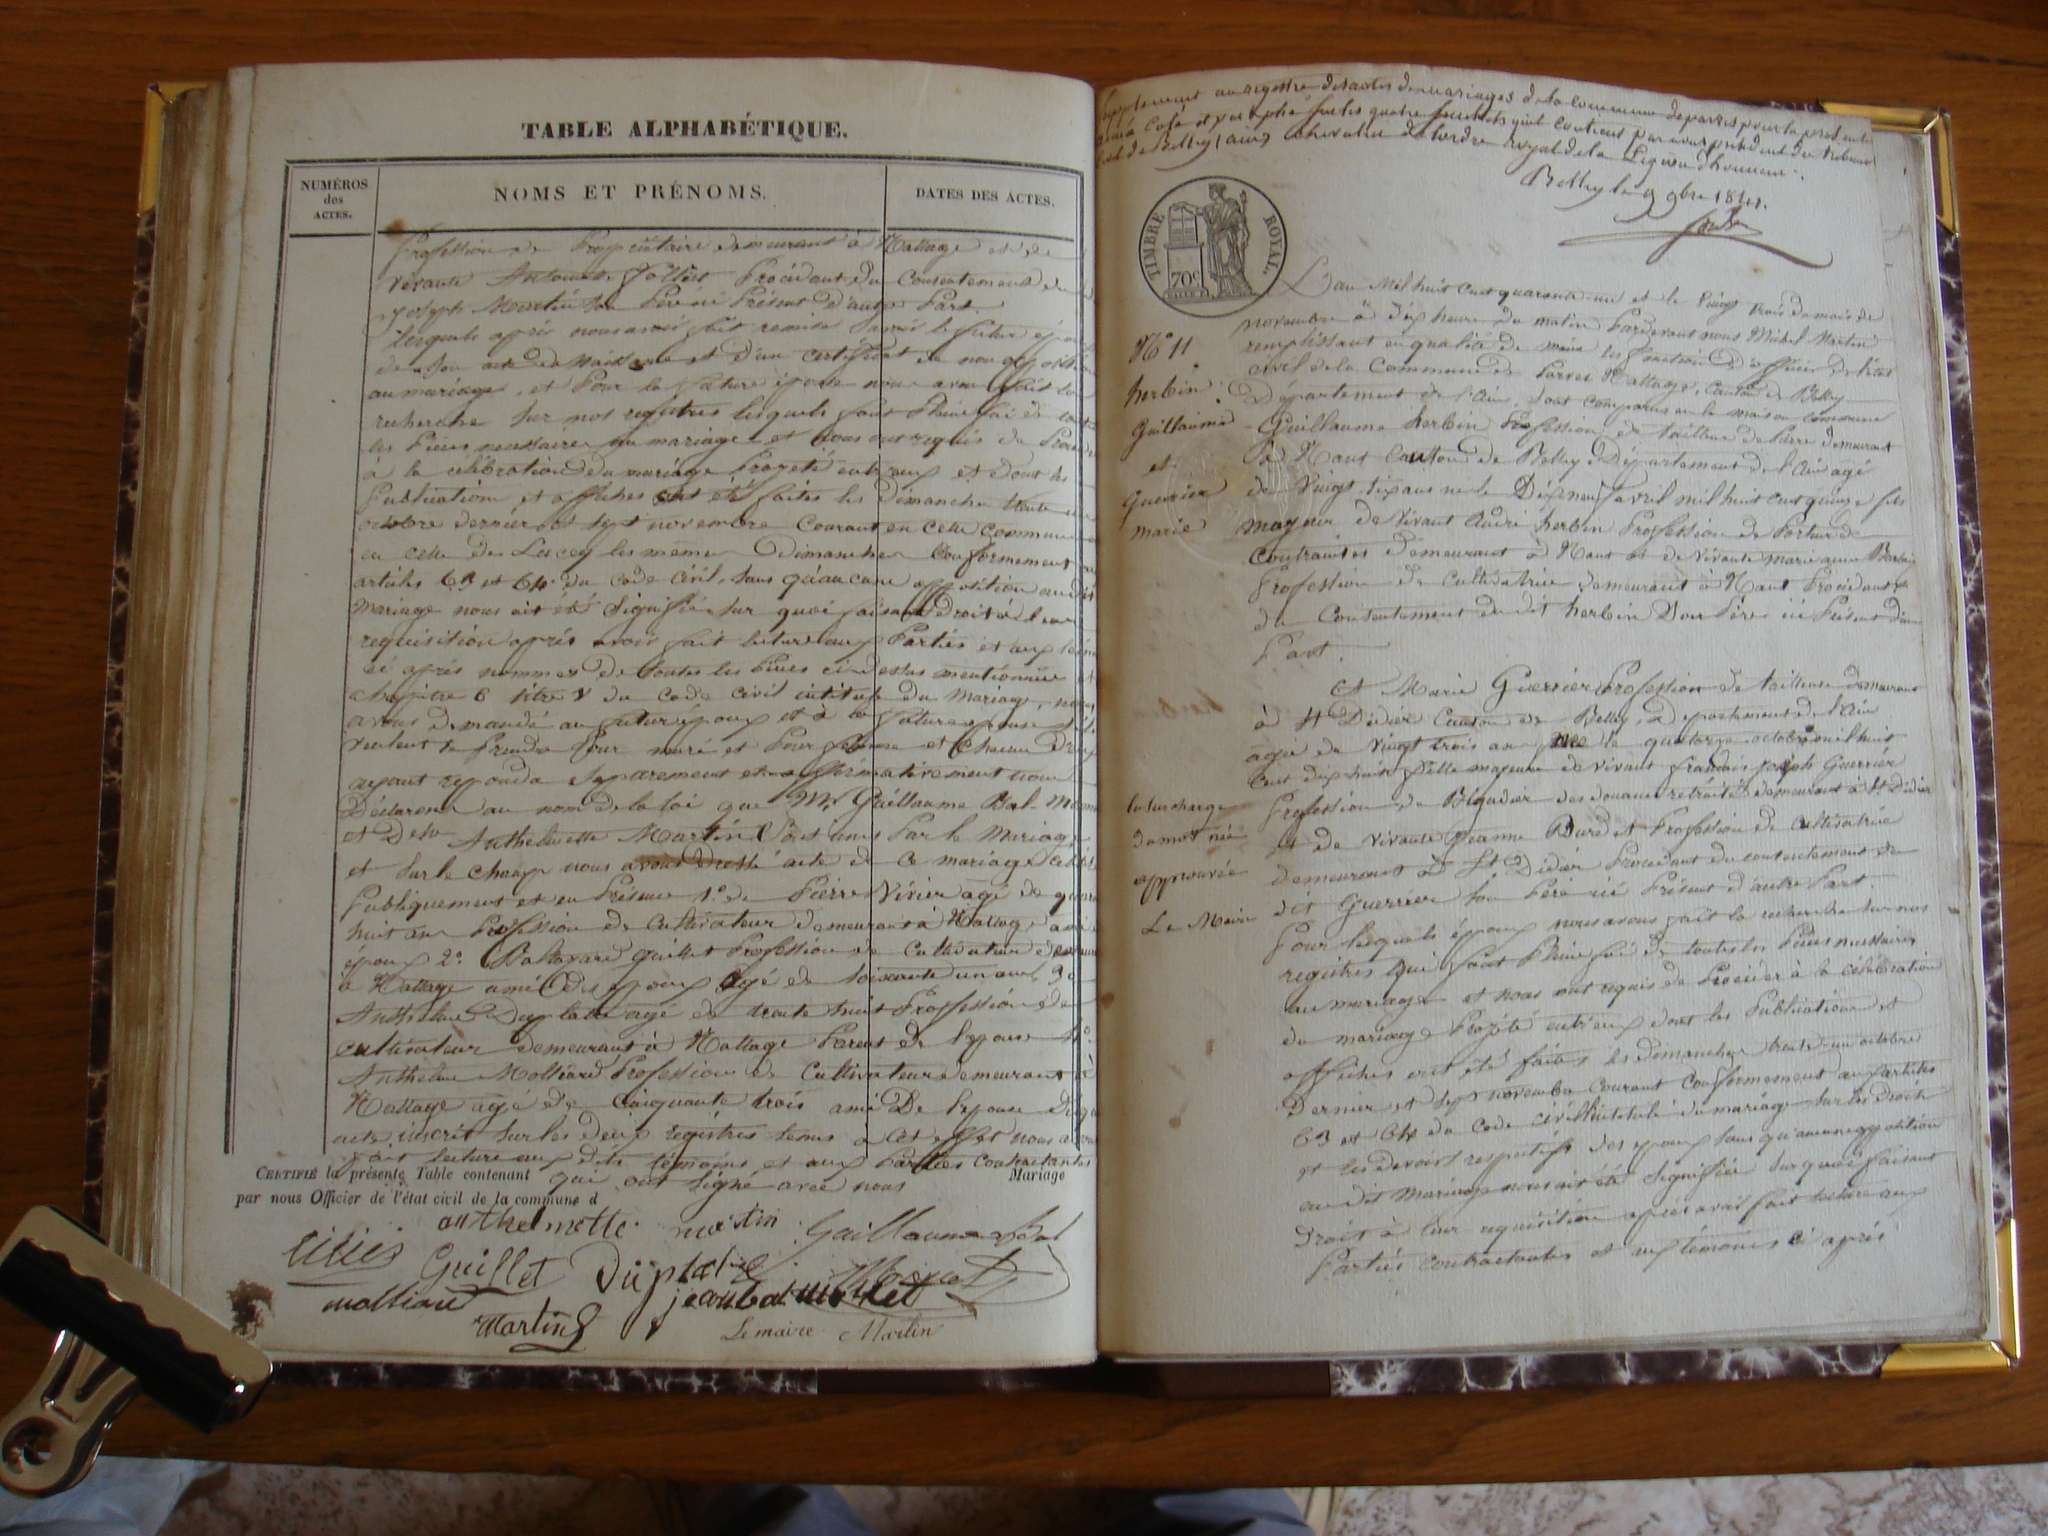 TABLE ALPHABÉTIQUE.
NUMÉROS des ACTES.
NOMS ET PRÉNOMS.
DATES DES ACTES.
Profession de Propriétaire demeurant à Nattage et de
vivante Antoinette Jollier Procédant du Consentement du
Joseph Martin son Père ici Présent d'autre Part.
lesquels après nous avoir fait remise savoir le futur
de son acte de Naissance et d'un certificat de non opposition
au mariage, et Pour la future épouse nous avons fait la
recherche sur nos registres lesquels font Pleine foi de toutes
les Pièces nécessaires au mariage et nous ont requis de
à la célébration du mariage Projeté entr'eux et dont les
Publications et affiches ont été faites les Dimanches trente un
octobre dernier et sept novembre Courant en cette commune
en celle de les mêmes Dimanches Conformément
articles 63 et 64 du Code Civil, sans qu'aucune opposition audit
Mariage nous ait été Signifiée, sur quoi faisant droit à leur
requisition après avoir fait lecture aux Parties et aux
ci après nommés de toutes les Pièces ci dessus mentionnées
chapitre 6 titre V du Code Civil intitulé du Mariage, nous
avons demandé au futur époux et à la future épouse
veulent se Prendre Pour mari et Pour femme et Chacun d'eux
ayant répondu Séparément et affirmativement nous
Déclarons au nom de la loi que Mr Guillaume Bal
et Delle Anthelmette Martin Sont unis Par le Mariage
et sur le champ nous avons dressé acte de ce mariage
Publiquement et en Présence 1° de Pierre Vivier âgé de
huit ans Profession de Cultivateur demeurant à Nattage ami
époux 2° Guillet Profession de Cultivateur
à Nattage ami des époux âgé de soixante un ans, 3°
Anthelme âgé de trente huit Profession de
cultivateur demeurant à Nattage Parent de l'épouse 4°
Anthelme Molliard Profession de Cultivateur demeurant à
Nattage âgé de Cinquante trois ami De l'épouse
acte inscrit sur les Deux registres tenus à cet effet nous avons
fait lecture aux dits témoins et aux Parties Contractantes
CERTIFIÉ la présente Table contenant Mariage
qui ont signé avec nous
par nous Officier de l'état civil de la commune d
anthelmette martin Guillaume Bal
Guillet
Martin
Le maire Martin
Supplément au registre des actes de mariages de la commune de parves pour la présente
année coté et paraphé sur les quatre feuillets qu'il contient par nous président du tribunal
civil de Belley (ain) chevalier de l'ordre royal de la Légion d'honneur.
Belley le 9 9bre 1841.
TIMBRE ROYAL.
70c
N° 11
herbin
Guillaume
et
Guerrier
marie
L'an Mil huit cent quarante un et le vingt trois du mois de
novembre à dix heure du matin Pardevant nous Michel Martin
remplissant en qualité de maire les fonctions d'officier de l'état
civil de la Commune de Parves Nattage, Canton de Belley
Département de l'Ain, sont comparus en la maison commune
Guillaume herbin Profession de tailleur de Pierre demeurant
à Nant Canton de Belley Département de l'Ain âgé
de vingt six ans né le Dix neuf avril mil huit cent quinze fils
majeur de vivant André herbin Profession de Porteur de
Contraintes demeurant à Nant et de vivante marie anne
Profession de Cultivatrice demeurant à Nant Procédant
du Consentement du dit herbin Son Père ici Présent d'une
Part.
Et Marie Guerrier Profession de tailleuse demeurant
à St Didier Canton de Belley, Département de l'Ain
âgée de vingt trois an née le quatorze octobre mil huit
cent dix huit fille majeure de vivant françois joseph Guerrier
Profession de Brigadier des douanes retraité demeurant à St Didier
et de vivante jeanne Profession de Cultivatrice
demeurant à St Didier Procédant du consentement du
dit Guerrier son Père ici Présent d'autre Part.
la surcharge
du mot née
approuvée
Le Maire
Pour lesquels époux nous avons fait la recherche sur nos
registres qui font Pleine foi de toutes les Pièces nécessaires
au mariage et nous ont requis de Procéder à la célébration
du mariage Projeté entr'eux dont les Publications et
affiches ont été faites les dimanches trente un octobre
Dernier et sept novembre courant conformément aux articles
63 et 64 du Code Civil intitulé du mariage sur les Droits
et les devoirs respectifs des époux sans qu'aucune opposition
au dit Mariage nous ait été Signifiée sur quoi faisant
droit à leur requisition après avoir fait lecture aux
Parties contractantes et aux témoins ci après